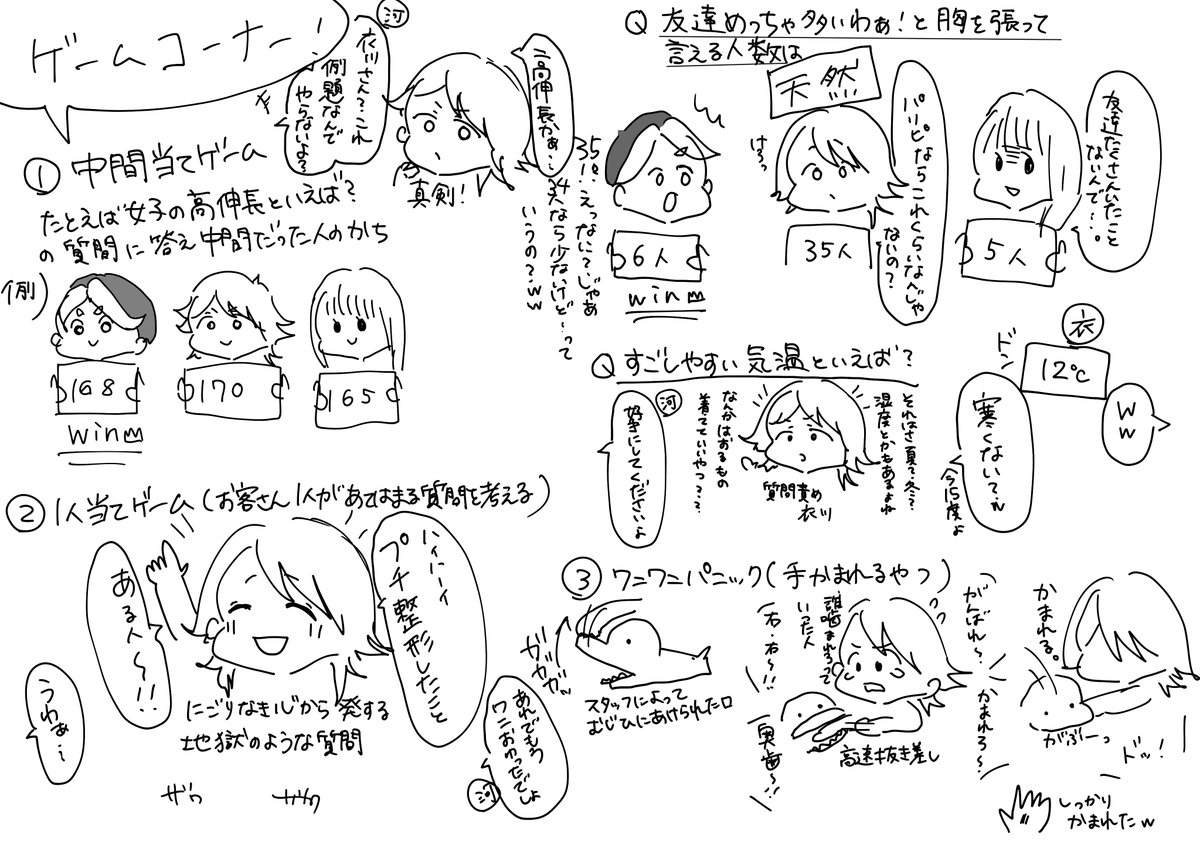 ゲームコーナー!
① 中間当てゲーム
たとえば女子の高伸長といえば?
の質問に答え中間だった人のかち
例)
168
win
170
165
河
衣川さん?これ
例題なんで
やらないよ?
高伸長かぁ…
真剣!
Q 友達めっちゃ多いわぁ!と胸を張って
言える人数は
35ぱ…えっない?じゃあ
34人なら少ないけど…って
いうの?ww
6人
win
天然
けろっ
35人
パリピならこれくらいなんじゃ
ないの?
5人
友達たくさんいたこと
ないんで…。
Q すごしやすい気温といえば?
河
好きにしてくださいよ
なんかはおるもの
着てていいやつ??
質問責め
衣川
それはさ夏?冬?
湿度とかもあるよね
衣
ドン
12℃
寒くない?w
今15度よ
ww
② 1人当てゲーム(お客さん1人があてはまる質問を考える)
ハイハーイ
プチ整形したこと
ある人〜!!
うわぁ…
にごりなき心から発する
地獄のような質問
ザワ
ザワ
③ ワニワニパニック(手かまれるやつ)
ガガガッ
スタッフによって
むじひにあけられた口
河
あれでもう
ワニおゆったでしょ
誰噛まれろって
いった人
右・右〜!!
奥歯〜!!
高速抜き差し
がんばれ〜
かまれろ〜
かまれる。
がぶーっ
ドッ!
しっかり
かまれたw